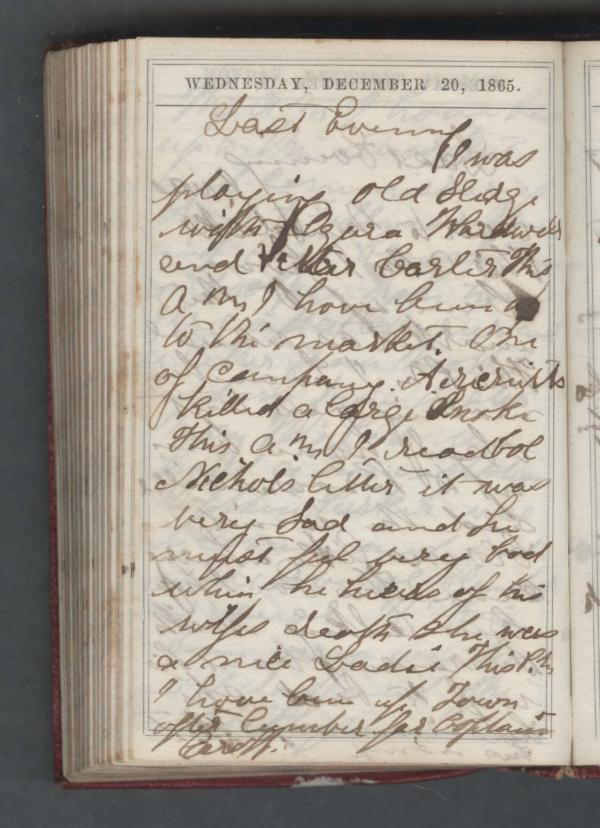 WEDNESDAY, DECEMBER 20, 1865.
Last Evening
I was
playing Old Sledge
with Ezara Wardwell
and Peter Carlie This
A M I have been
to the market. One
of Company A. recruits
killed a large Snake
This a m I read Col
Nichols letter it was
very Sad and he
must feel very bad
when he hears of his
wifes death She was
a nice Ladie This P.M
I have been up Town
after Cumber for Captain